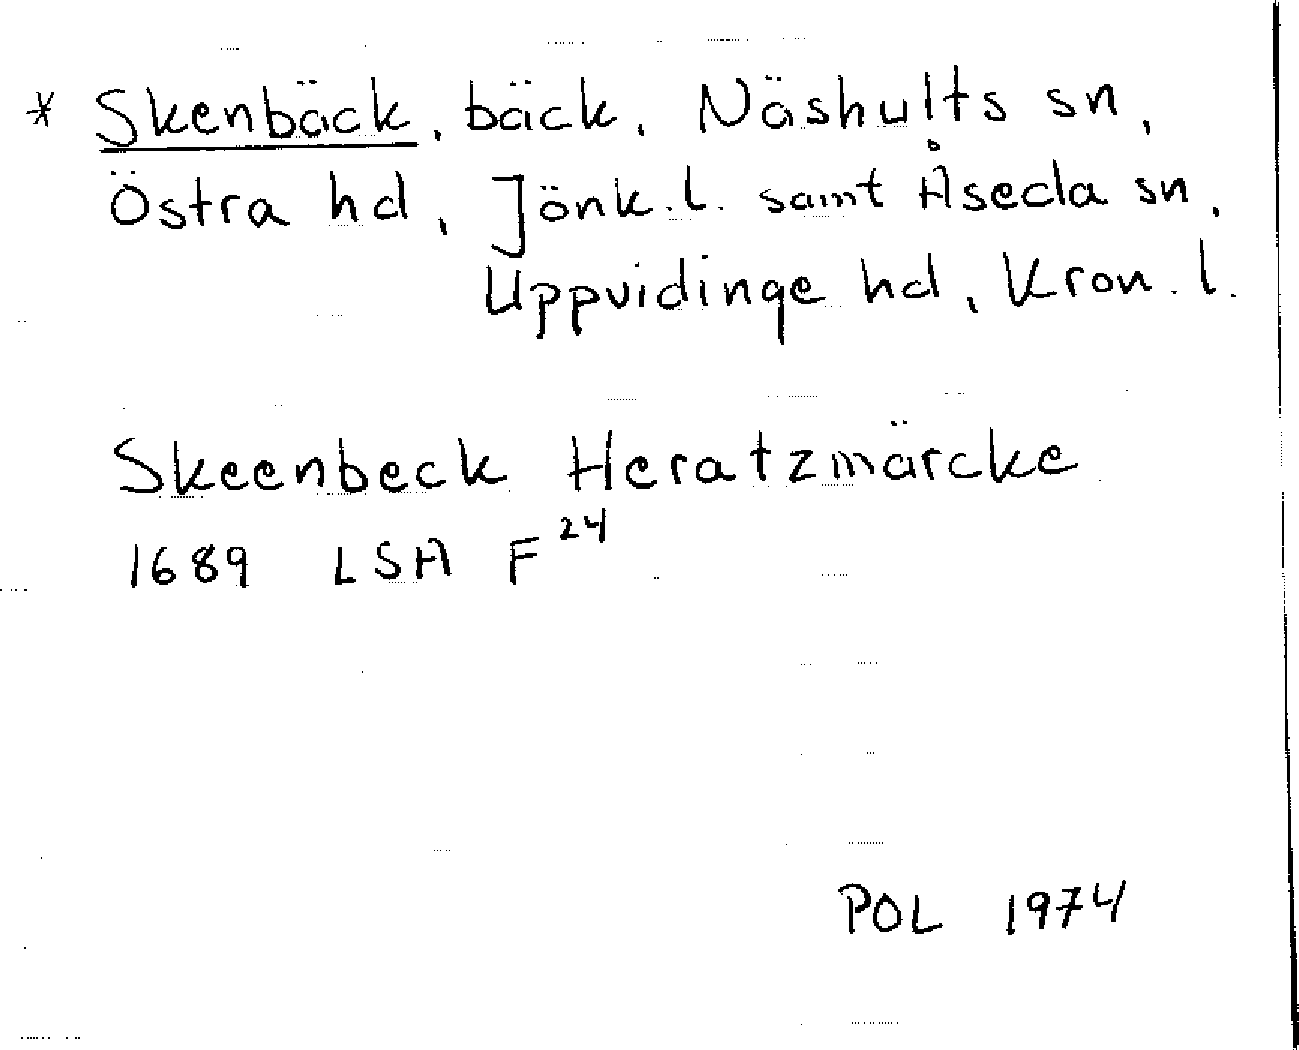 * Skenbäck, bäck, Näshults sn,
Östra hd, Jönk. l. samt Åseda sn,
Uppvidinge hd, Kron. l.
Skeenbeck Heratzmärcke
1689 LSA F 24
POL 1974